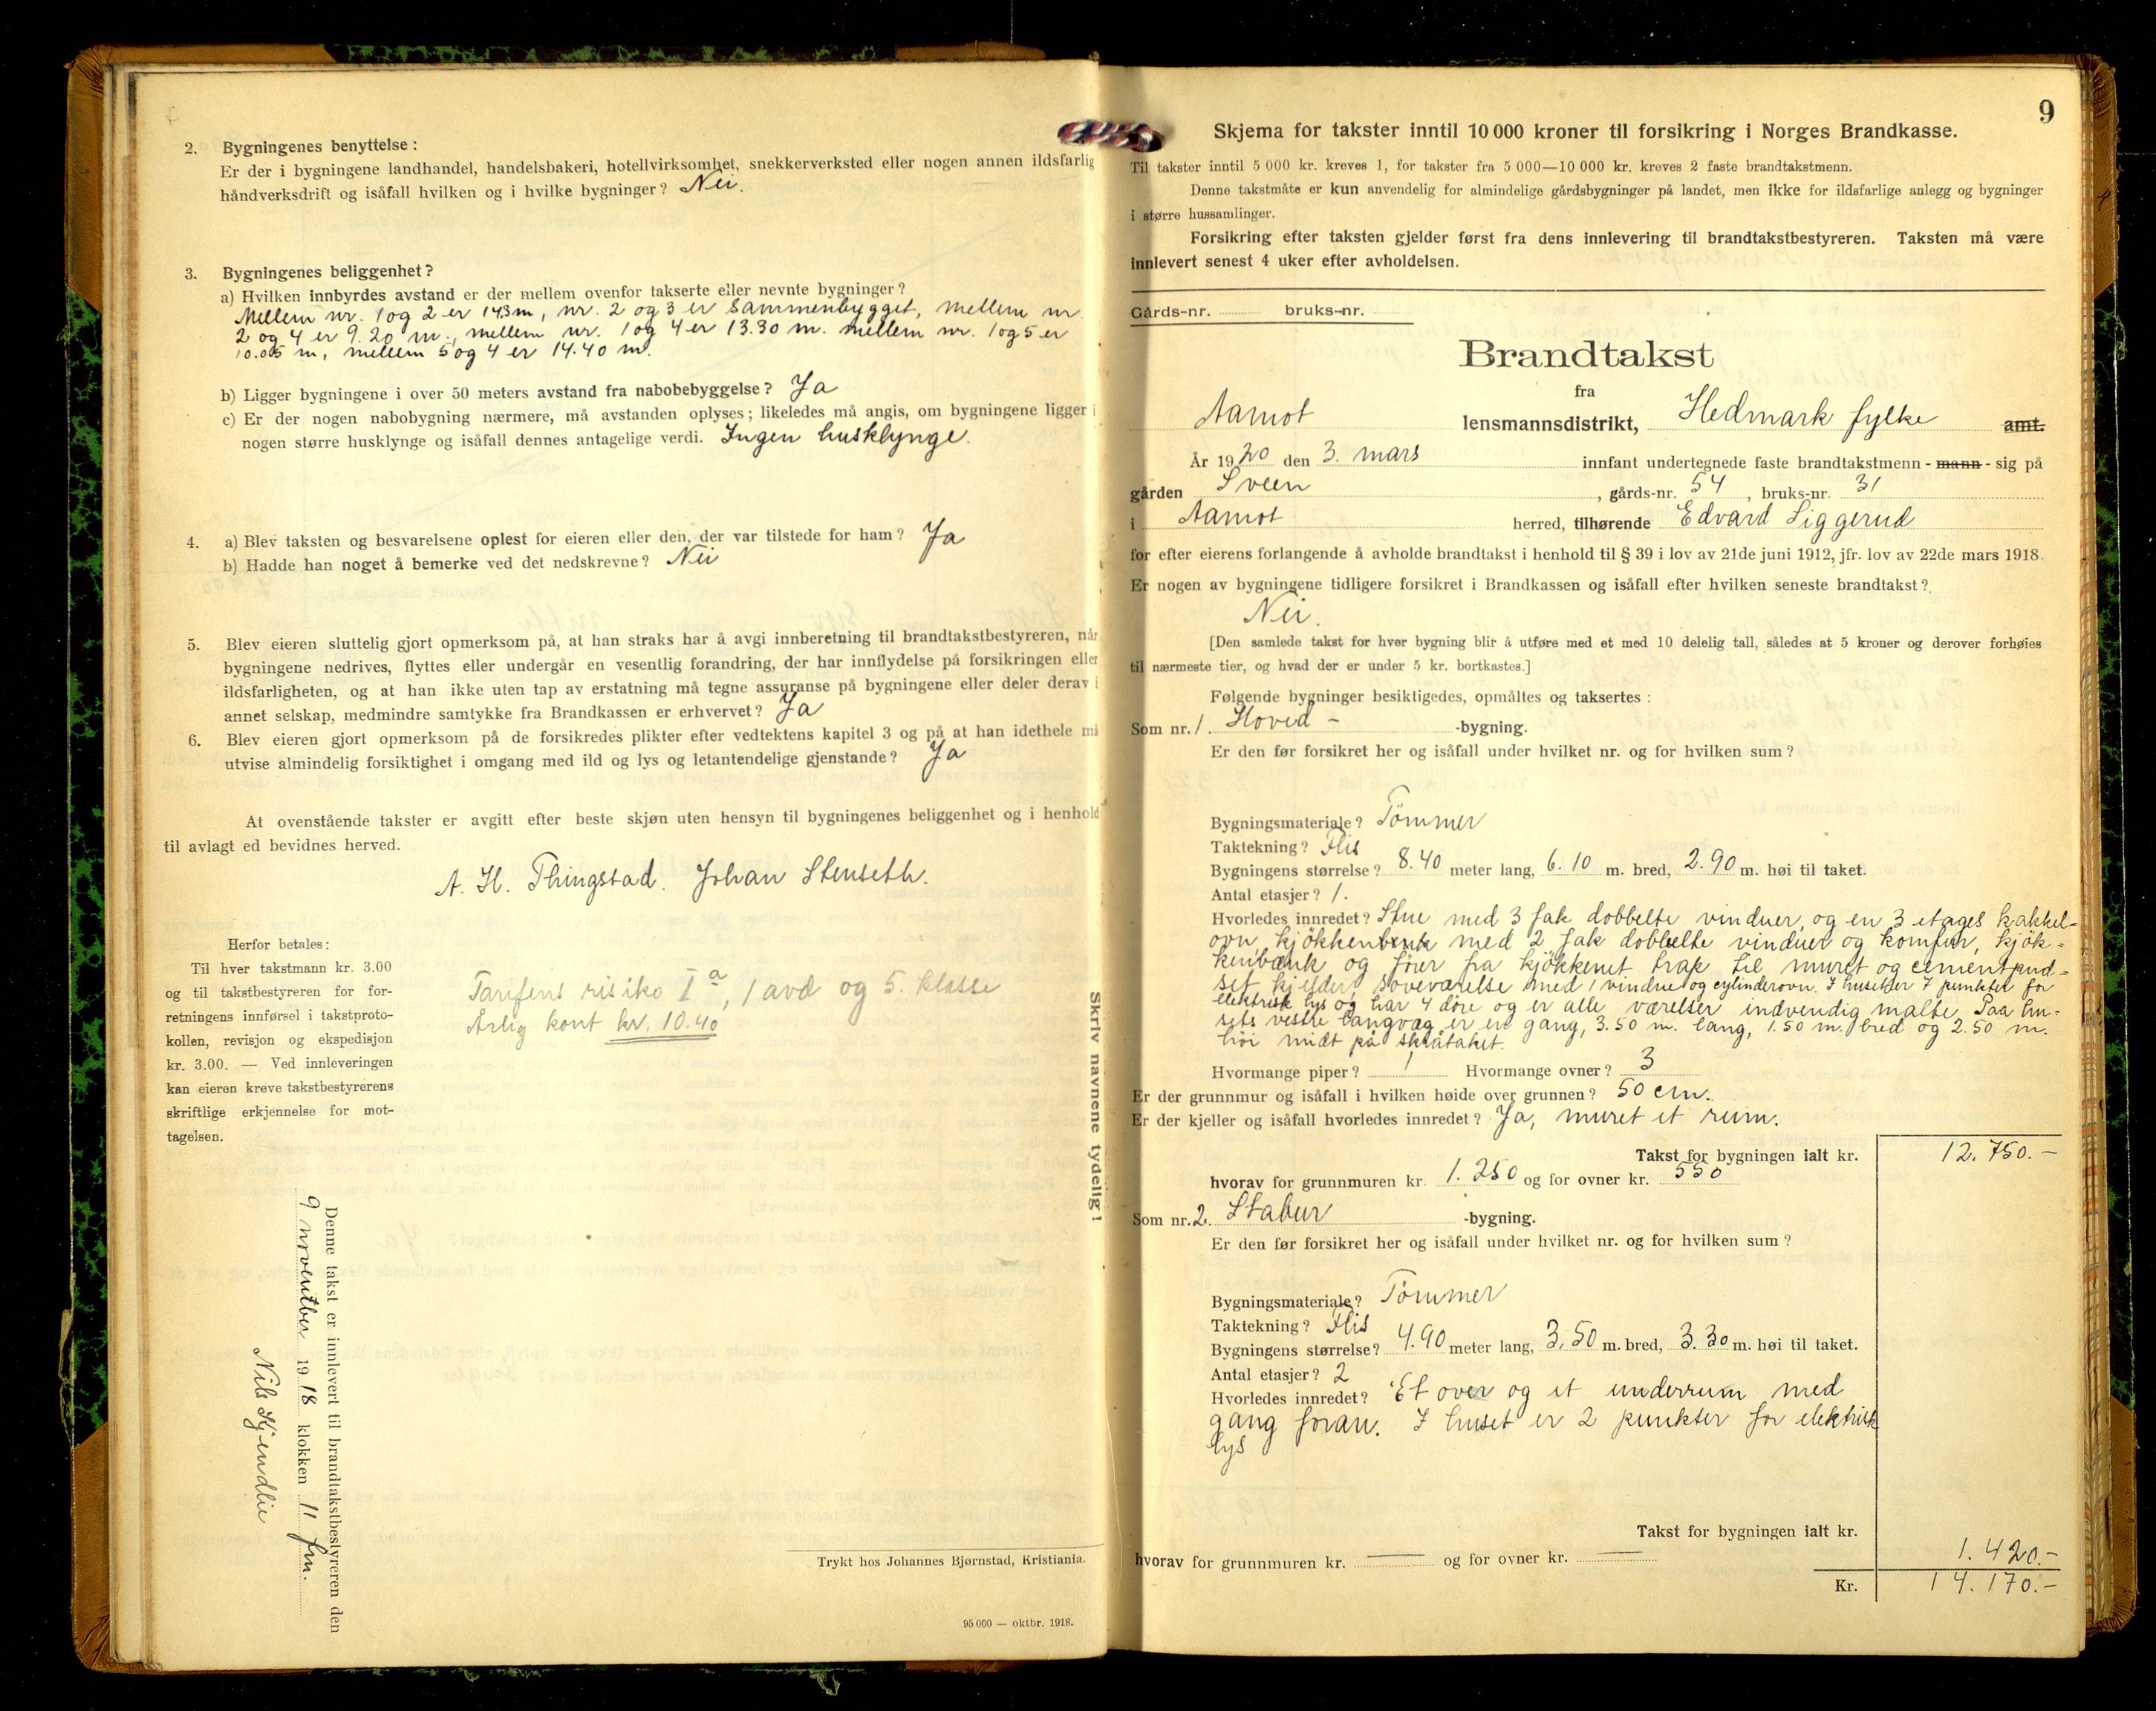 2. Bygningenes benyttelse:
Er der i bygningene landhandel, handelsbakeri, hotellvirksomhet, snekkerverksted eller nogen annen ildsfarlig
håndverksdrift og isåfall hvilken og i hvilke bygninger? Nei.
3. Bygningenes beliggenhet?
a) Hvilken innbyrdes avstand er der mellem ovenfor takserte eller nevnte bygninger?
Mellem nr. 1 og 2 er 14.3 m, nr. 2 og 3 er sammenbygget, mellem nr
2 og 4 er 9.20 m., mellem nr. 1 og 4 er 13.30 m. mellem nr. 1 og 5 er
10.05 m, mellem 5 og 4 er 14.40 m.
b) Ligger bygningene i over 50 meters avstand fra nabobebyggelse? Ja
c) Er der nogen nabobygning nærmere, må avstanden oplyses; likeledes må angis, om bygningene ligger i
nogen større husklynge og isåfall dennes antagelige verdi. Ingen husklynge.
4. a) Blev taksten og besvarelsene oplest for eieren eller den, der var tilstede for ham? Ja
b) Hadde han noget å bemerke ved det nedskrevne? Nei
5. Blev eieren sluttelig gjort opmerksom på, at han straks har å avgi innberetning til brandtakstbestyreren, når
bygningene nedrives, flyttes eller undergår en vesentlig forandring, der har innflydelse på forsikringen eller
ildsfarligheten, og at han ikke uten tap av erstatning må tegne assuranse på bygningene eller deler derav i
annet selskap, medmindre samtykke fra Brandkassen er erhvervet? Ja
6. Blev eieren gjort opmerksom på de forsikredes plikter efter vedtektens kapitel 3 og på at han idethele må
utvise almindelig forsiktighet i omgang med ild og lys og letantendelige gjenstande? Ja
At ovenstående takster er avgitt efter beste skjøn uten hensyn til bygningenes beliggenhet og i henhold
til avlagt ed bevidnes herved.
A. H. Thingstad. Johan Stenseth.
Herfor betales:
Til hver takstmann kr. 3.00
og til takstbestyreren for for-
retningens innførsel i takstproto-
kollen, revisjon og ekspedisjon
kr. 3.00. — Ved innleveringen
kan eieren kreve takstbestyrerens
skriftlige erkjennelse for mot-
tagelsen.
Tarifens risiko I a, 1 avd og 5. klasse
Årlig kont kr. 10.40
Skriv navnene tydelig!
Denne takst er innlevert til brandtakstbestyreren den
9 november 1918 klokken 11 fm.
Nils Kjendlie
Trykt hos Johannes Bjørnstad, Kristiania.
95 000 — oktbr. 1918.
9
Skjema for takster inntil 10 000 kroner til forsikring i Norges Brandkasse.
Til takster inntil 5 000 kr. kreves 1, for takster fra 5 000—10 000 kr. kreves 2 faste brandtakstmenn.
Denne takstmåte er kun anvendelig for almindelige gårdsbygninger på landet, men ikke for ildsfarlige anlegg og bygninger
i større hussamlinger.
Forsikring efter taksten gjelder først fra dens innlevering til brandtakstbestyreren. Taksten må være
innlevert senest 4 uker efter avholdelsen.
Gårds-nr. bruks-nr.
Brandtakst
fra
Aamot lensmannsdistrikt, Hedmark fylke amt.
År 1920 den 3. mars innfant undertegnede faste brandtakstmenn - mann - sig på
gården Sveen, gårds-nr. 54, bruks-nr. 31
i Aamot herred, tilhørende Edvard Liggerud
for efter eierens forlangende å avholde brandtakst i henhold til § 39 i lov av 21de juni 1912, jfr. lov av 22de mars 1918.
Er nogen av bygningene tidligere forsikret i Brandkassen og isåfall efter hvilken seneste brandtakst?
Nei.
[Den samlede takst for hver bygning blir å utføre med et med 10 delelig tall, således at 5 kroner og derover forhøies
til nærmeste tier, og hvad der er under 5 kr. bortkastes.]
Følgende bygninger besiktigedes, opmåltes og taksertes:
Som nr. 1. Hoved- -bygning.
Er den før forsikret her og isåfall under hvilket nr. og for hvilken sum?
Bygningsmateriale? Tömmer
Taktekning? Flis
Bygningens størrelse? 8.40 meter lang, 6.10 m. bred, 2.90 m. høi til taket.
Antal etasjer? 1.
Hvorledes innredet? Stue med 3 fak dobbelte vinduer, og en 3 etages kakkel-
ovn, kjökken med 2 fak dobbelte vinduer og komfur, kjök-
kenbænk og föier fra kjökkenet trap til muret og cementpud-
set kjelder, soveværelse med 1 vindue og cylinderovn. I huset er 7 punkter for
elektrisk lys og har 4 döre og er alle værelser indvendig malte. Paa hu-
sets vestre langvæg er en gang, 3.50 m. lang, 1.50 m. bred og 2.50 m.
höi midt på skråtaket.
Hvormange piper? 1 Hvormange ovner? 3
Er der grunnmur og isåfall i hvilken høide over grunnen? 50 cm.
Er der kjeller og isåfall hvorledes innredet? Ja, muret et rum.
Takst for bygningen ialt kr. 12.750.-
hvorav for grunnmuren kr. 1.250 og for ovner kr. 550
Som nr. 2. Stabur -bygning.
Er den før forsikret her og isåfall under hvilket nr. og for hvilken sum?
Bygningsmateriale? Tömmer
Taktekning? Flis
Bygningens størrelse? 4.90 meter lang, 3.50 m. bred, 3.30 m. høi til taket.
Antal etasjer? 2
Hvorledes innredet? Et over og et underrum med
gang foran. I huset er 2 punkter for elektrisk
lys
Takst for bygningen ialt kr. 1.420.-
hvorav for grunnmuren kr. — og for ovner kr. —
Kr. 14.170.-